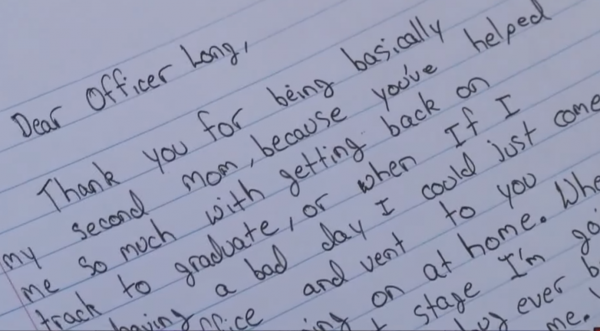 Dear Officer Long,
Thank you for being basically
my second mom, because you've helped
me so much with getting back on
track to graduate, or when If I
having a bad day I could just come
office and vent to you
on at home. Whe
stage I'm goi
ever b
me.